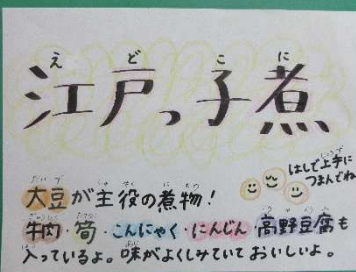 えどこに
江戸っ子煮
はしで上手に
つまんでね
だいずしゅやくにもの
大豆が主役の煮物！
ぎゅうにく
牛肉・筍・こんにゃく・にんじん・高野豆腐も
入っているよ。味がよくしみていておいしいよ。